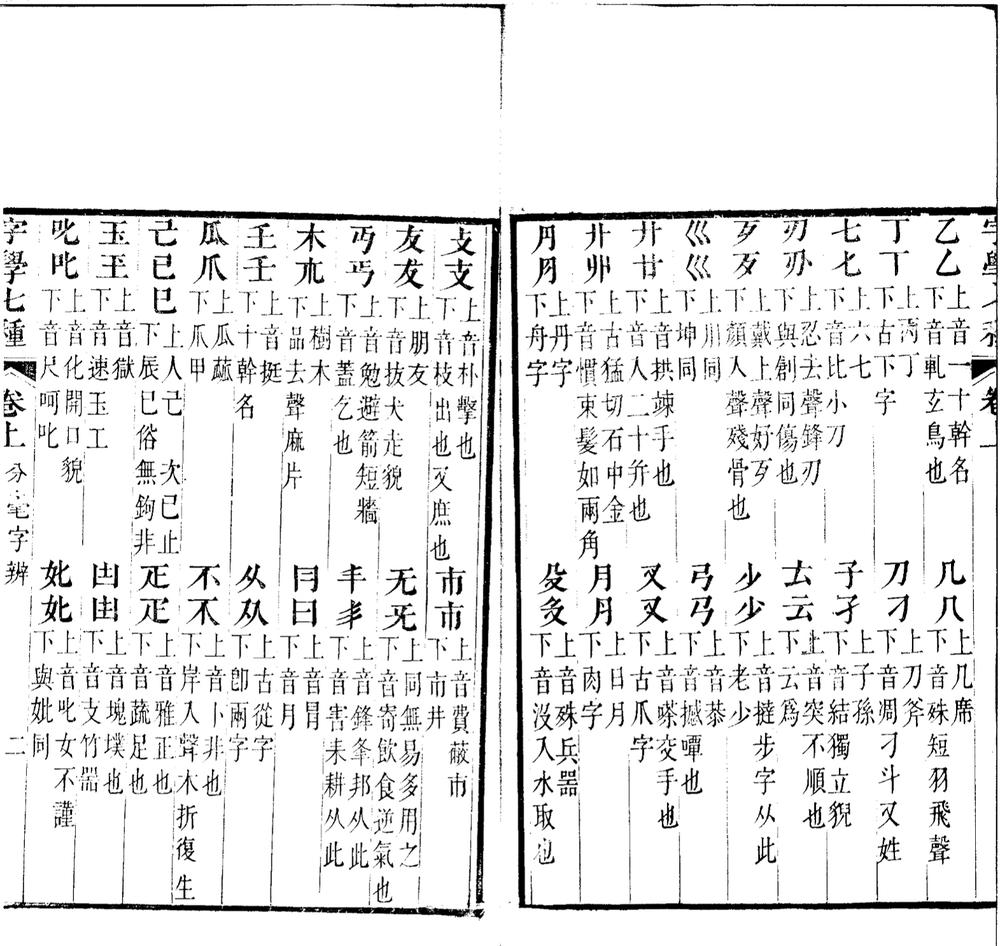 字學七種 卷上
乙乚 上音一十幹名
下音軋玄鳥也
几𠘧 上几席
下音殊短羽飛聲
丁丅 上丙丁
下古下字
刀刁 上刀斧
下音凋刁斗又姓
七𠤎 上六七
下音比小刀
子孑 上子孫
下音結獨立貌
刃刅 上忍去聲鋒刃
下與創同傷也
𠫓云 上音突不順也
下云爲
歹歺 上戴上聲好歹
下顏入聲殘骨也
少少 上音撻步字从此
下老少
巛巛 上川同
下坤同
弓弓 上音恭
下音撼嘾也
廾廿 上音拱竦手也
下音入二十幷也
叉㕚 上音㗫交手也
下古爪字
卝丱 上古猛切石中金
下音慣束髮如兩角
月月 上日月
下肉字
丹⺝ 上丹字
下舟字
殳𠬛 上音殊兵器
下音沒入水取也
攴支 上音朴擊也
下音枝出也又庶也
巿市 上音費蔽巿
下市井
友犮 上朋友
下音拔犬走貌
无旡 上同無易多用之
下音寄飲食逆氣也
丏丐 上音勉避箭短牆
下音蓋乞也
丰丯 上音鋒夆邦从此
下音害耒耕从此
木朩 上樹木
下品去聲麻片
冃曰 上音冒
下音月
𡈼壬 上音挺
下十幹名
从㒳 上古從字
下卽兩字
瓜爪 上瓜蓏
下爪甲
不不 上音卜非也
下岸入聲木折復生
己已巳 上人己 次已止
下辰巳俗無鉤非
疋疋 上音雅正也
下音蔬足也
玉王 上音獄
下音速玉工
凷 上音塊墣也
下音支竹器
𠮟叱 上音化開口貌
下音尺呵叱
妣 上音叱女不謹
下與妣同
字學七種 卷上 分毫字辨 二